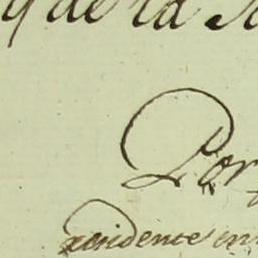 y de la
Por
residente en